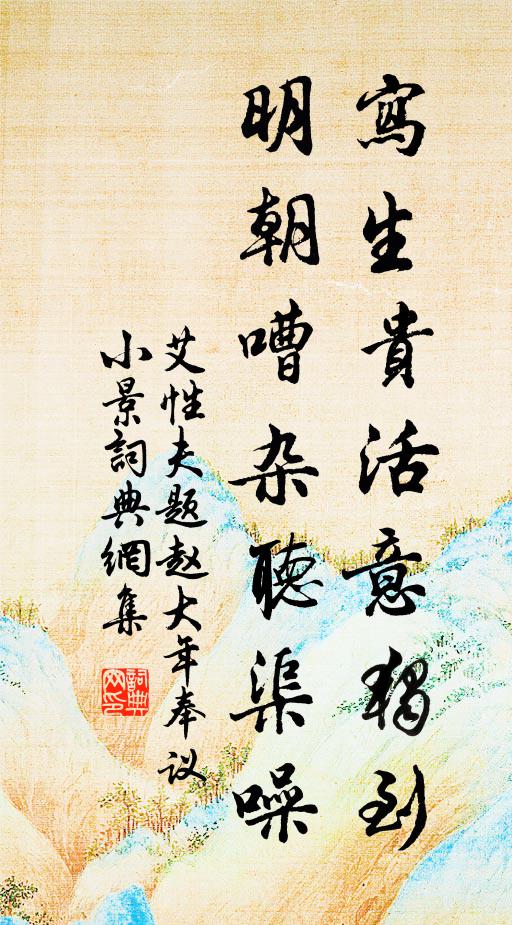 寫生貴活意獨到
明朝嘈杂聽渠噪
艾性夫题赵大年奉议
小景詞典網集
詞典
网印